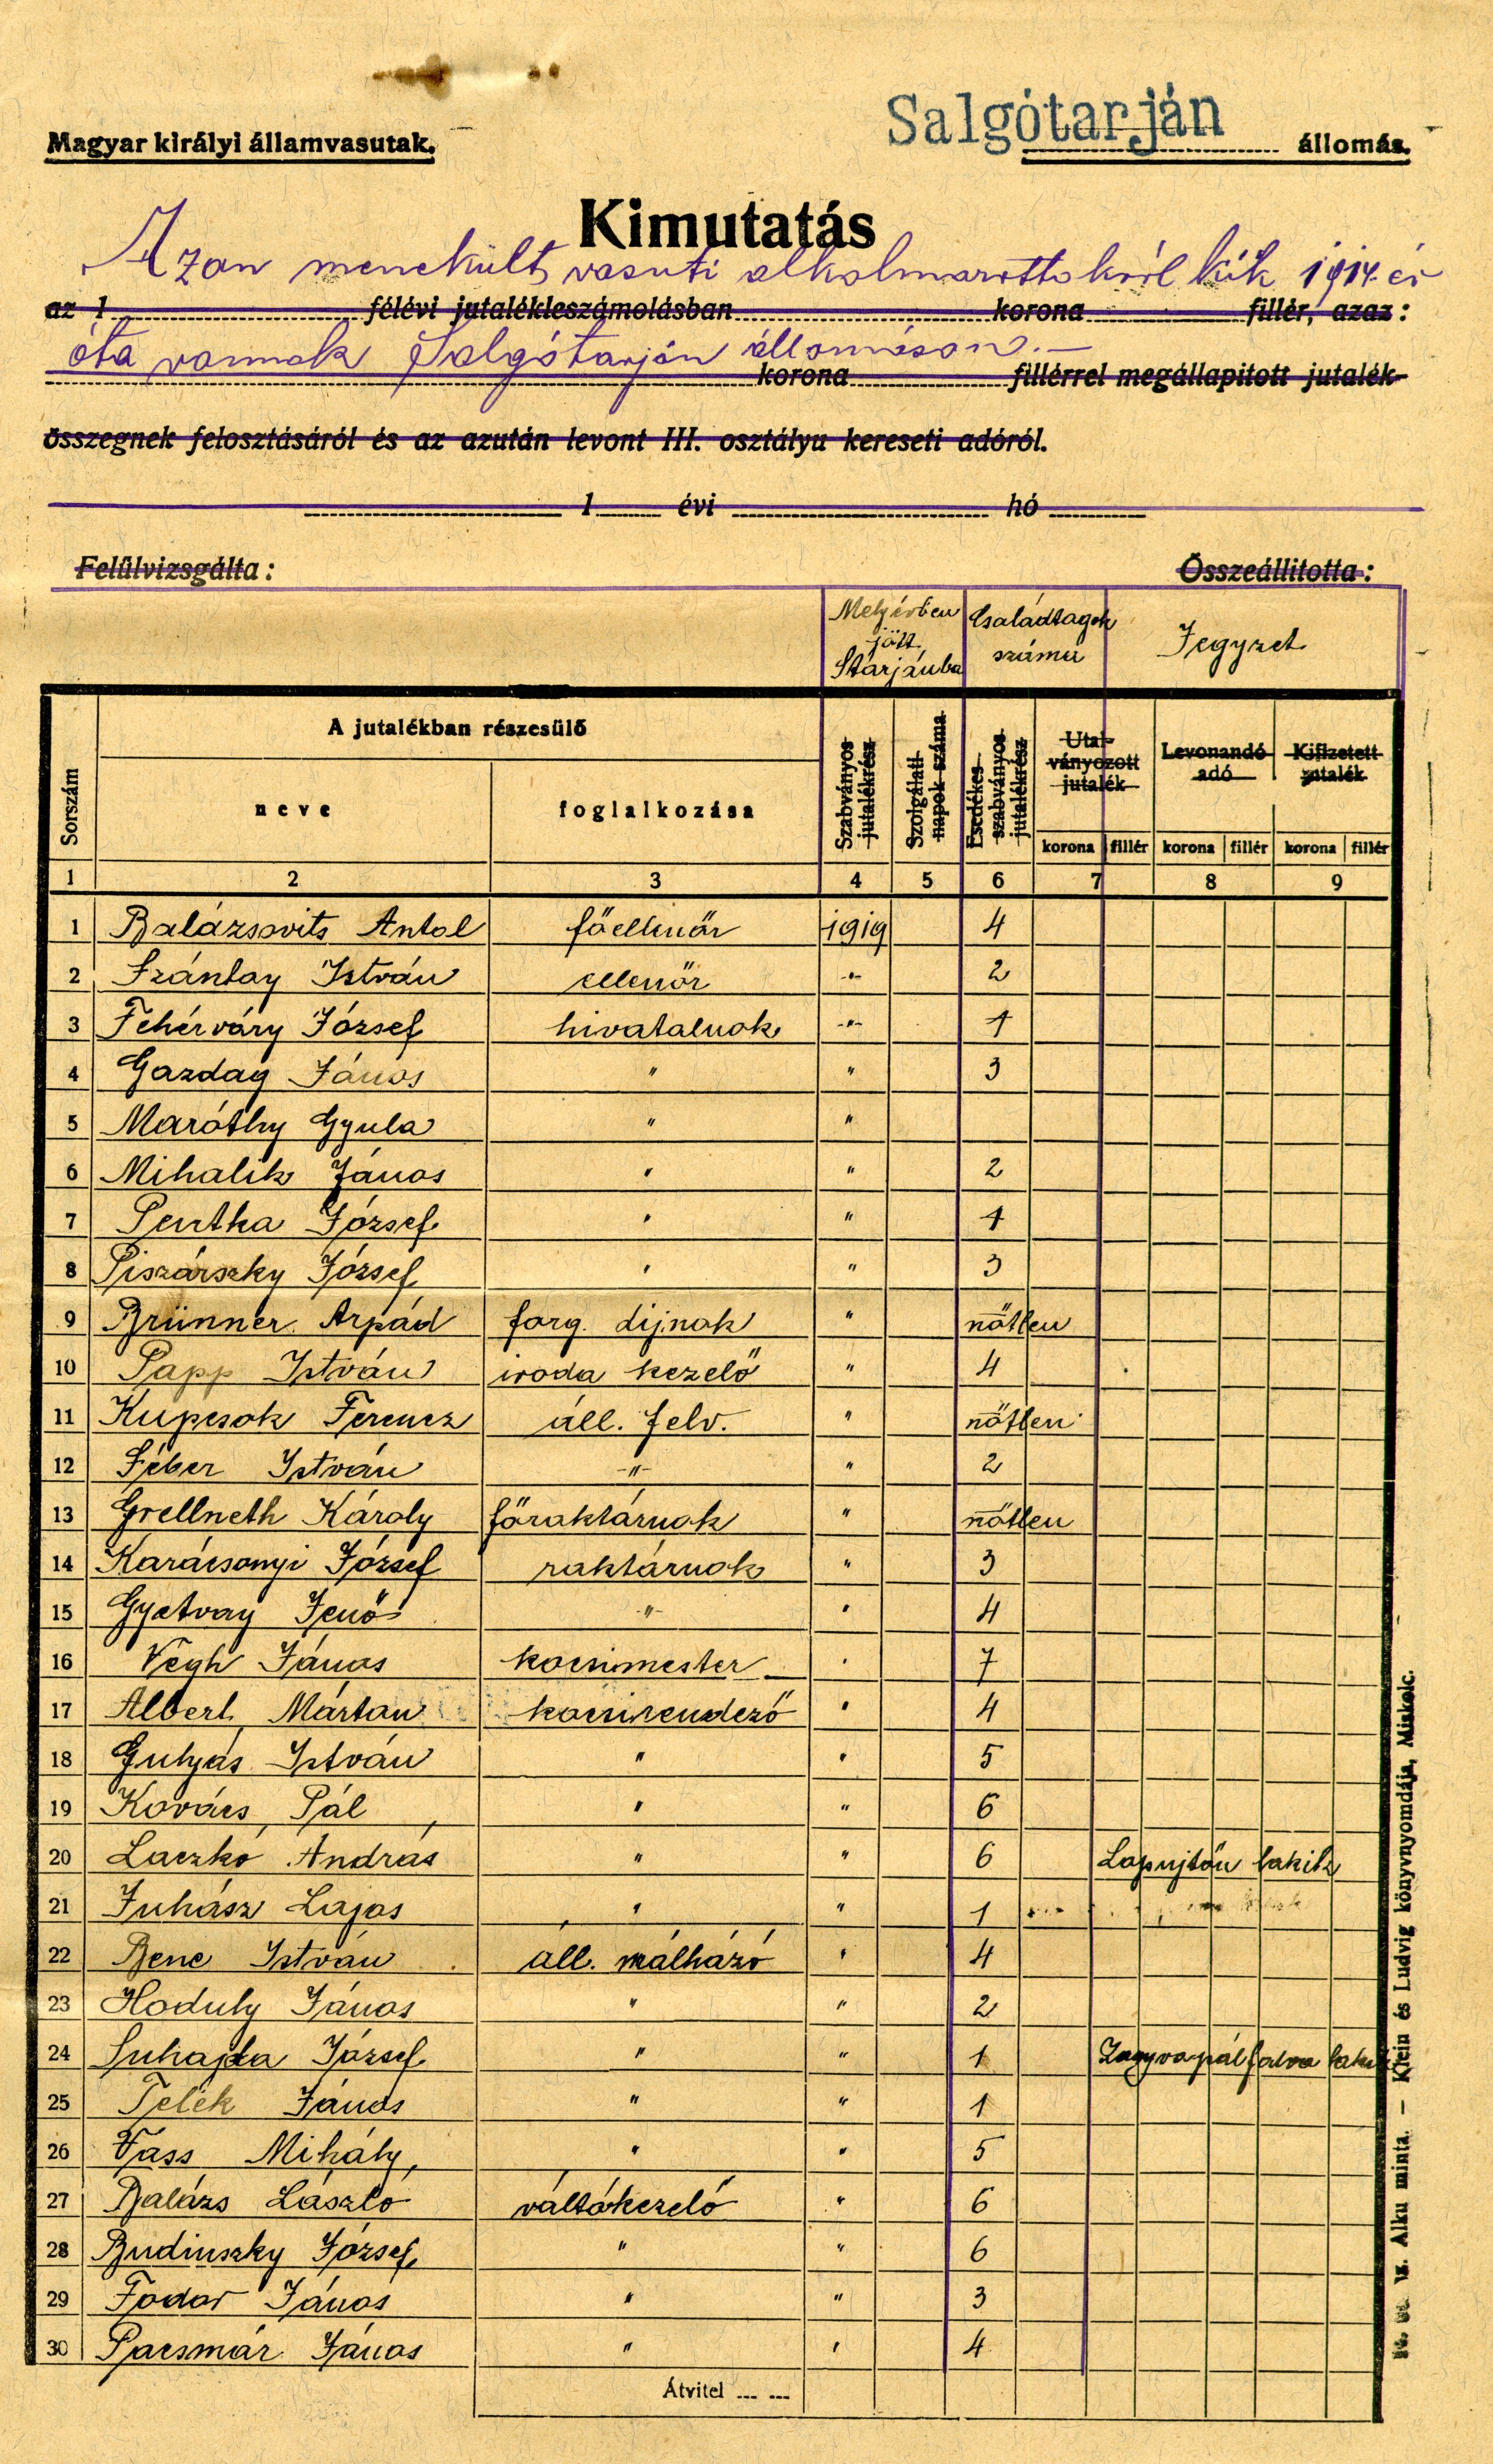 Salgótarján
Magyar királyi államvasutak. állomás.
Kimutatás
Azon menekült vasuti alkalmazottakról kik 1914. év
az 1 félévi jutalékleszámolásban korona fillér, azaz:
óta vannak Salgótarján állomáson.—
korona fillérrel megállapitott jutalék-
összegnek felosztásáról és az azután levont III. osztályu kereseti adóról.
1 évi hó
Felülvizsgálta: Összeállitotta:
Mely évben jött Starjánba
Családtagok száma
Jegyzet
Sorszám
A jutalékban részesülő
neve
foglalkozása
Szabványos jutalékrész
Szolgálati napok száma
Esedékes szabványos jutalékrész
Utalványozott jutalék
Levonandó adó
Kifizetett jutalék
korona fillér korona fillér korona fillér
1 2 3 4 5 6 7 8 9
1 Balázsovits Antal főellenőr 1919 4
2 Szántay István ellenőr -"- 2
3 Fehérváry József hivatalnok -"- 1
4 Gazdag János " " 3
5 Maróthy Gyula " "
6 Mihalik János " " 2
7 Pentka József " " 1
8 Piszárszky József " " 3
9 Brünner Árpád forg. dijnok " nőtlen
10 Papp István iroda kezelő " 4
11 Kupcsok Ferencz áll. felv. " nőtlen
12 Féber István -"- " 2
13 Grellneth Károly főraktárnok " nőtlen
14 Karácsonyi József raktárnok " 3
15 Gyetvay Jenő -"- " 4
16 Végh János kocsimester " 7
17 Albert Márton kocsirendező " 4
18 Gulyás István " " 5
19 Kovács Pál " " 6
20 Laczkó András " " 6 Lapujtőn lakik
21 Juhász Lajos " " 1
22 Bene István áll. málházó " 4
23 Hoduly János " " 2
24 Suhajda József " " 1 Zagyvapálfalva
25 Telek János " " 1
26 Vass Mihály " " 5
27 Balázs László váltókezelő " 6
28 Budinszky József " " 6
29 Fodor János " " 3
30 Pacsmár János " " 4
Átvitel
Alku minta. — Klein és Ludvig könyvnyomdája, Miskolc.